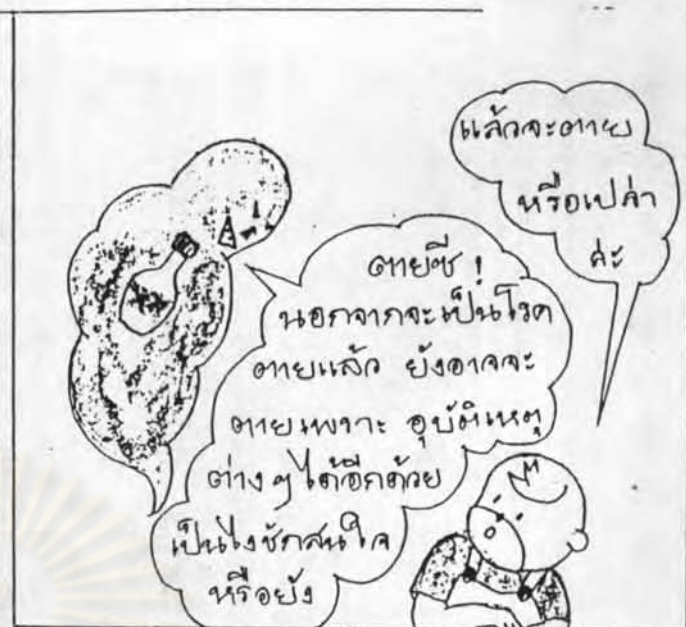 แล้วจะตาย
หรือเปล่า
ค่ะ
ตายซี !
นอกจากจะเป็นโรค
ตายแล้ว ยังอาจจะ
ตายเพราะ อุบัติเหตุ
ต่างๆได้อีกด้วย
เป็นไงชักสนใจ
หรือยัง